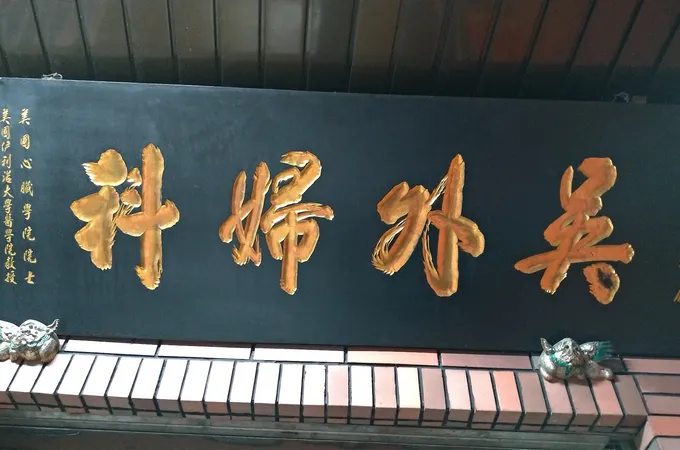 吳外婦科
美國心臟學院院士
美國伊利諾大學醫學院教授